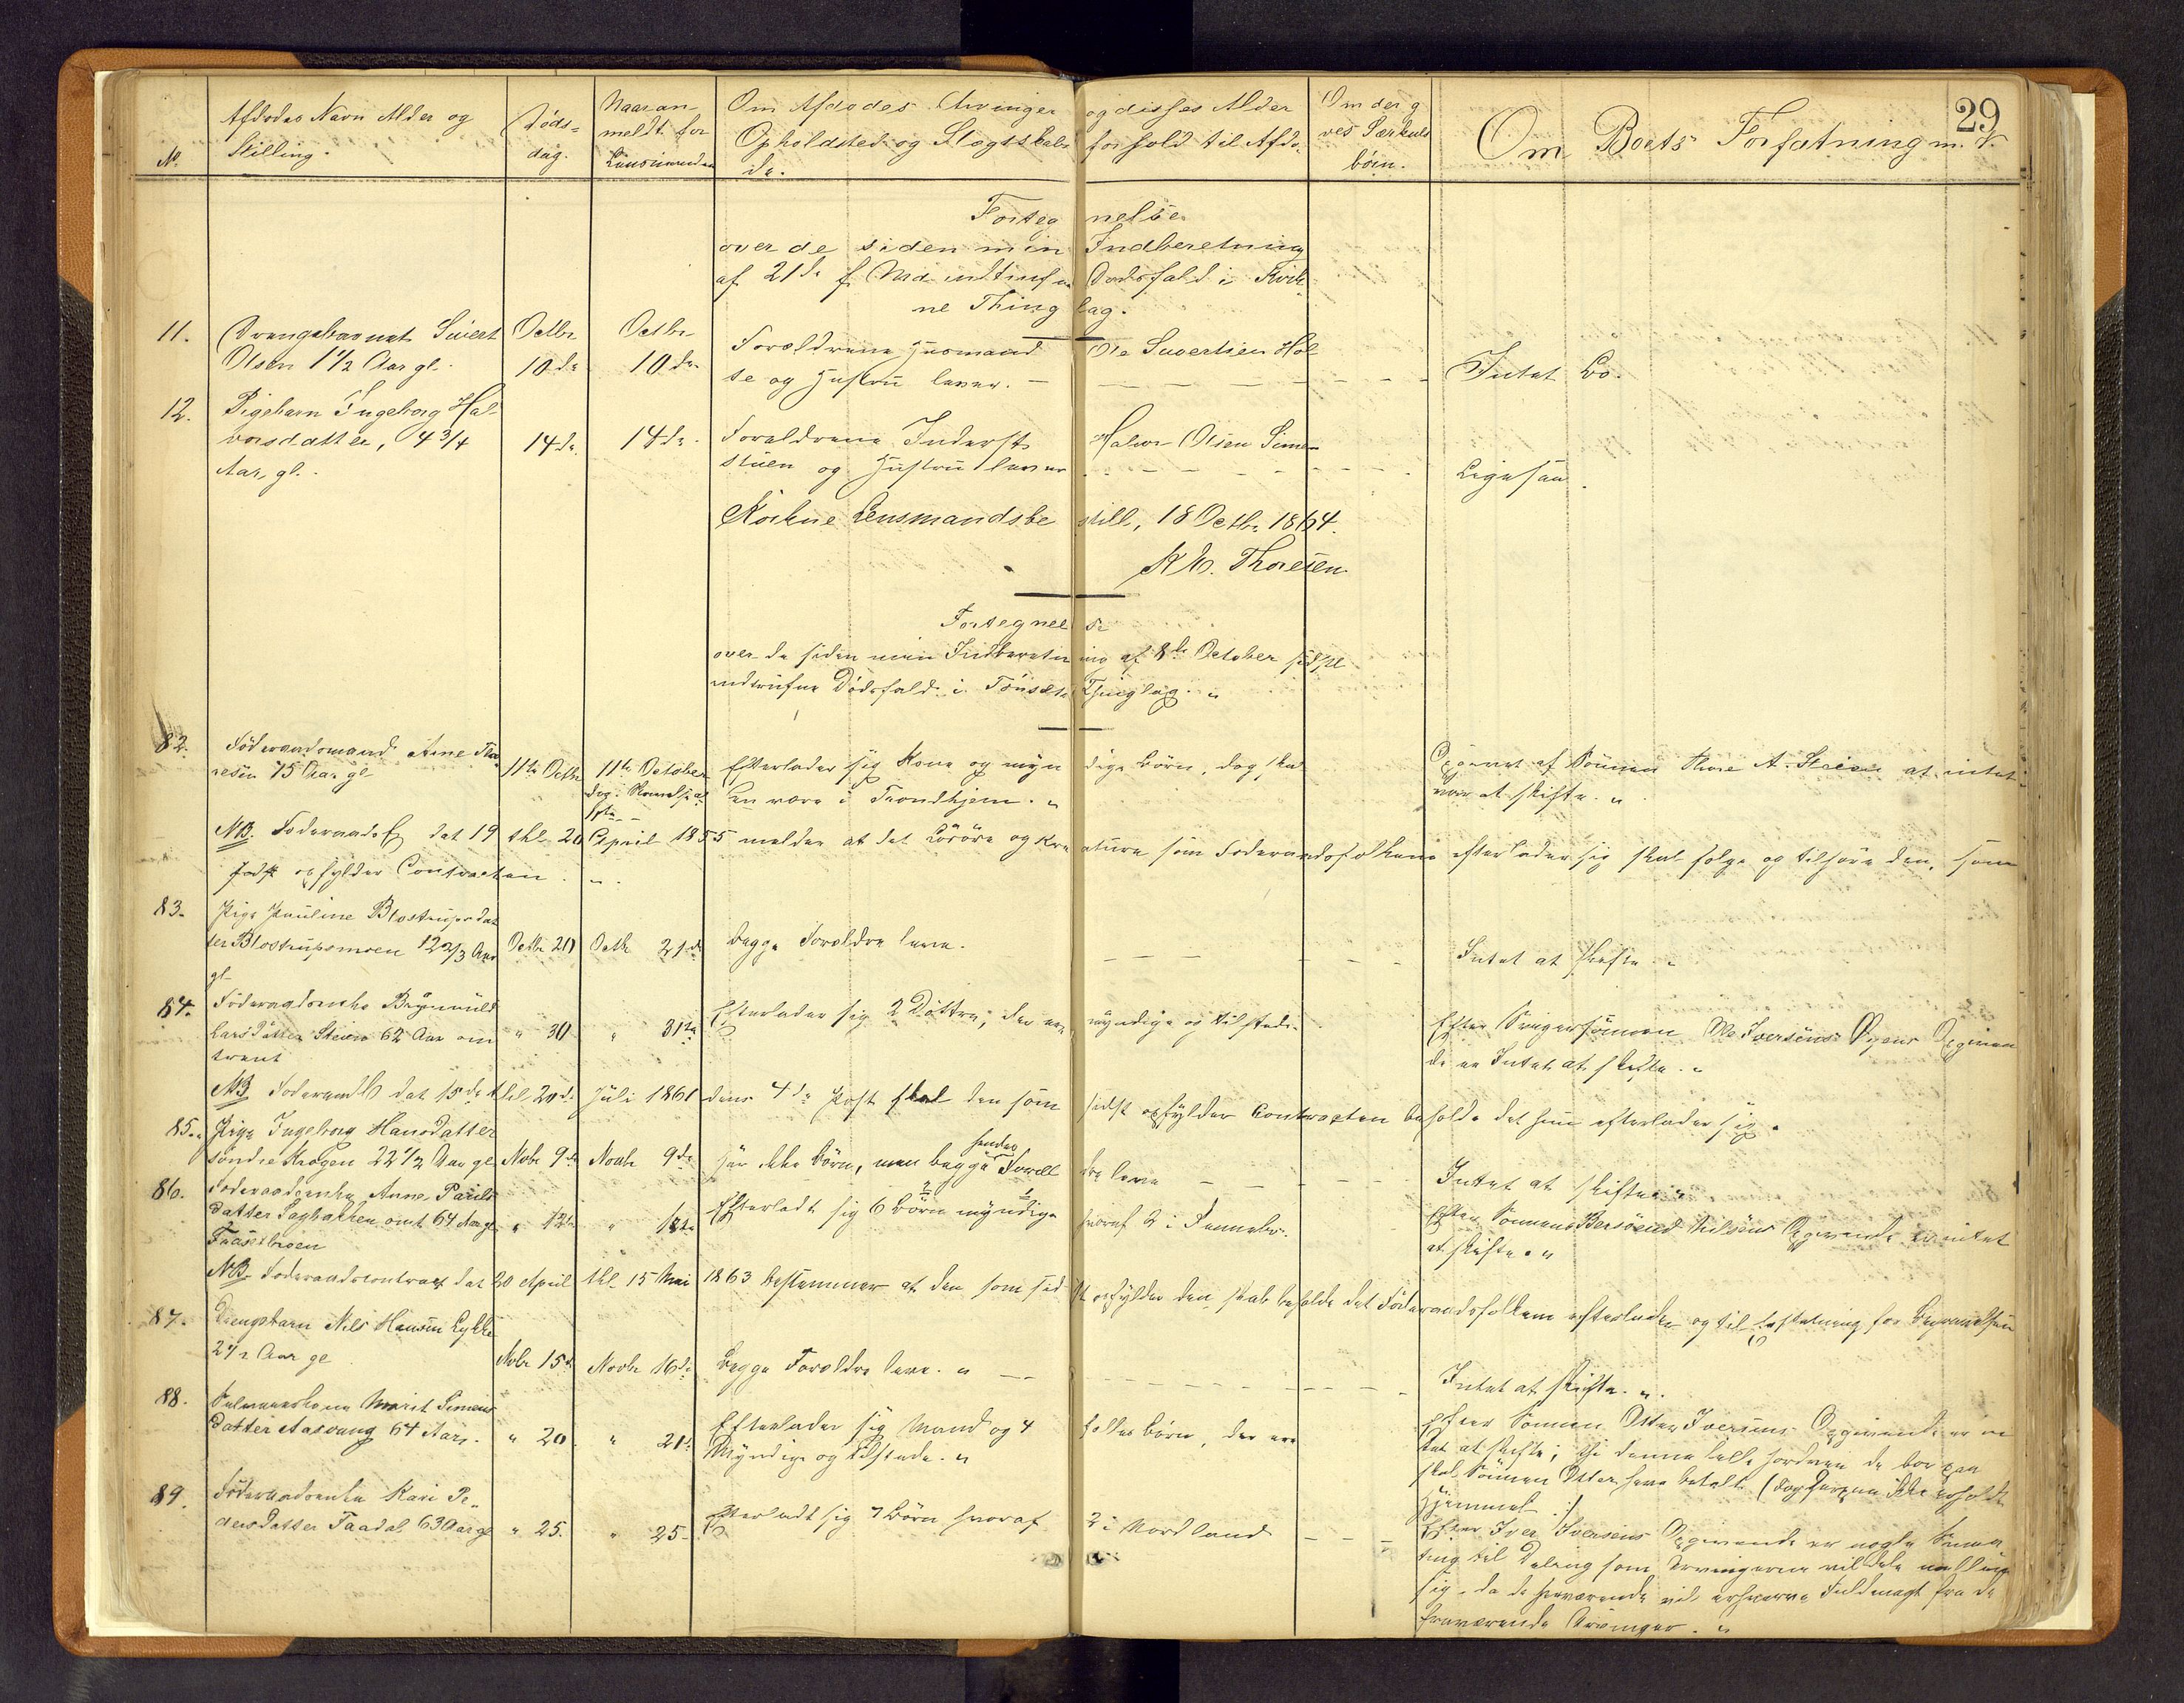 29
No. Afdødes Navn Alder og Stilling. Døds-dag. Naar an-meldt for Lensmanden Om Afdødes Arvinger og disses Alder Opholdsted og Slægtskabs forhold til Afdø-de. Om der g ves Særkuld børn. Om Boets Forfatning m. V.
Forteg nelse
over de siden min Indberetning
af 21de f. Md. indtrufne Dødsfald i Kvik
ne Thing lag.
11. Drengebarnet Sivert Octbr Octbr Forældrene Husmand Ole Sivertsen Hol
Olsen 1 1/2 Aar gl. 10de 10de te og Hustru lever. Intet Bo.
12. Pigebarn Ingeborg Hal
vorsdatter, 4 3/4 14de 14de. Forældrene Inderst Halvor Olsen Simen
Aar gl. stuen og Hustru lever Ligesaa.
Kvikne Lensmandsbe still, 18 Octbr. 1864.
Thoresen
Fortegnel se
over de siden min Indberetn ing af 8de October sidstl
indtrufne Dødsfald i Tönset Thinglag. "
82. Föderaadsmand Arne Tho
resen 75 Aar gl 11te Octbr 11te October Efterlader sig Kone og myn dige Börn, dog skal Opgivet af Sönnen Thore A. at intet
en være i Trondhjem. " var at skifte. "
NB. Föderaads dat 19 thl. 20 April 1855 melder at det Lösöre og Kre ature som Föderaadsfolkene efterlader sig skal følge og tilhøre den, som
sidst opfylder Contracten. "
83. Pige Pauline Blostrupsdat
ter Blostrupsmoen 12 2/3 Aar gl Octbr 20 Octbr 21de begge Forældre leve. Intet at skifte. "
84. Föderaadsenke Brynnild
Larsdatter Steien 62 Aar om " 30 " 31te Efterlader sig 2 Døttre, der ere myndige og tilstede. Efter Svigersönnen Ole Iversens Opgiven
trent de er Intet at skifte. "
NB Föderaads dat 15de thl. 20de Juli 1861 dens 4de Post skal den som sidst opfylder Contracten beholde det hun efterlader sig.
85. Pige Ingeborg Hansdatter
söndre Krogen 22 1/2 Aar gl Novbr 9de Novbr 9de Har ikke Börn, men begge hendes Foræl dre leve Intet at skifte. "
86. Föderaadsenke Anne Pauls
datter Sagbakken omt 64 Aar gl " 12te " Efterladt sig 6 Börn myndige hvoraf 2 i Efter Sönnen Bersvend Nilsens Opgivende er intet
at skifte. "
NB. Föderaadscontract dat 20 April thl. 15 Mai 1863 bestemmer at den som sid st opfylder den, skal beholde det Föderaadsfolkene efterlader og til bestatning for Begravelsen
87. Drengebarn Nils Hansen Lykke
2 1/2 Aar gl Novbr 15de Novbr 16de Begge Forældre leve. " Intet at skifte. "
88. Selveierkone Marit Simens
datter Aasvang 64 Aar. " 20 " 21de Efterlader sig Mand og 4 fælles börn, der ere Efter Sönnen Otter Iversens Opgivende er in
Myndige og tilstede. " tet at skifte; thi denne lille Jordvei de boe paa
skal Sönnen Otter have betalt
Hjemmel
89. Föderaadsenke Kari Pe-
dersdatter Faadal 63 Aar gl " 25. " 25. Efterladt sig 7 Börn hvoraf 2 i Nordland Efter Iver Iversens Opgivende er nogle Smaa
ting til Deling som Arvingerne vil dele mellem
sig, da de herværende vil erhverve Fuldmagt fra de
fraværende Arvinger. "